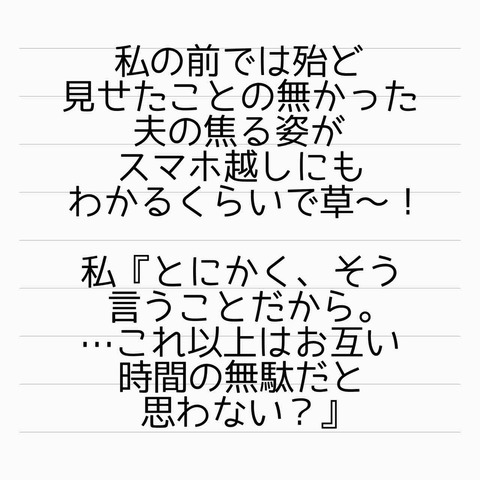 私の前では殆ど
見せたことの無かった
夫の焦る姿が
スマホ越しにも
わかるくらいで草〜！
私『とにかく、そう
言うことだから。
…これ以上はお互い
時間の無駄だと
思わない？』